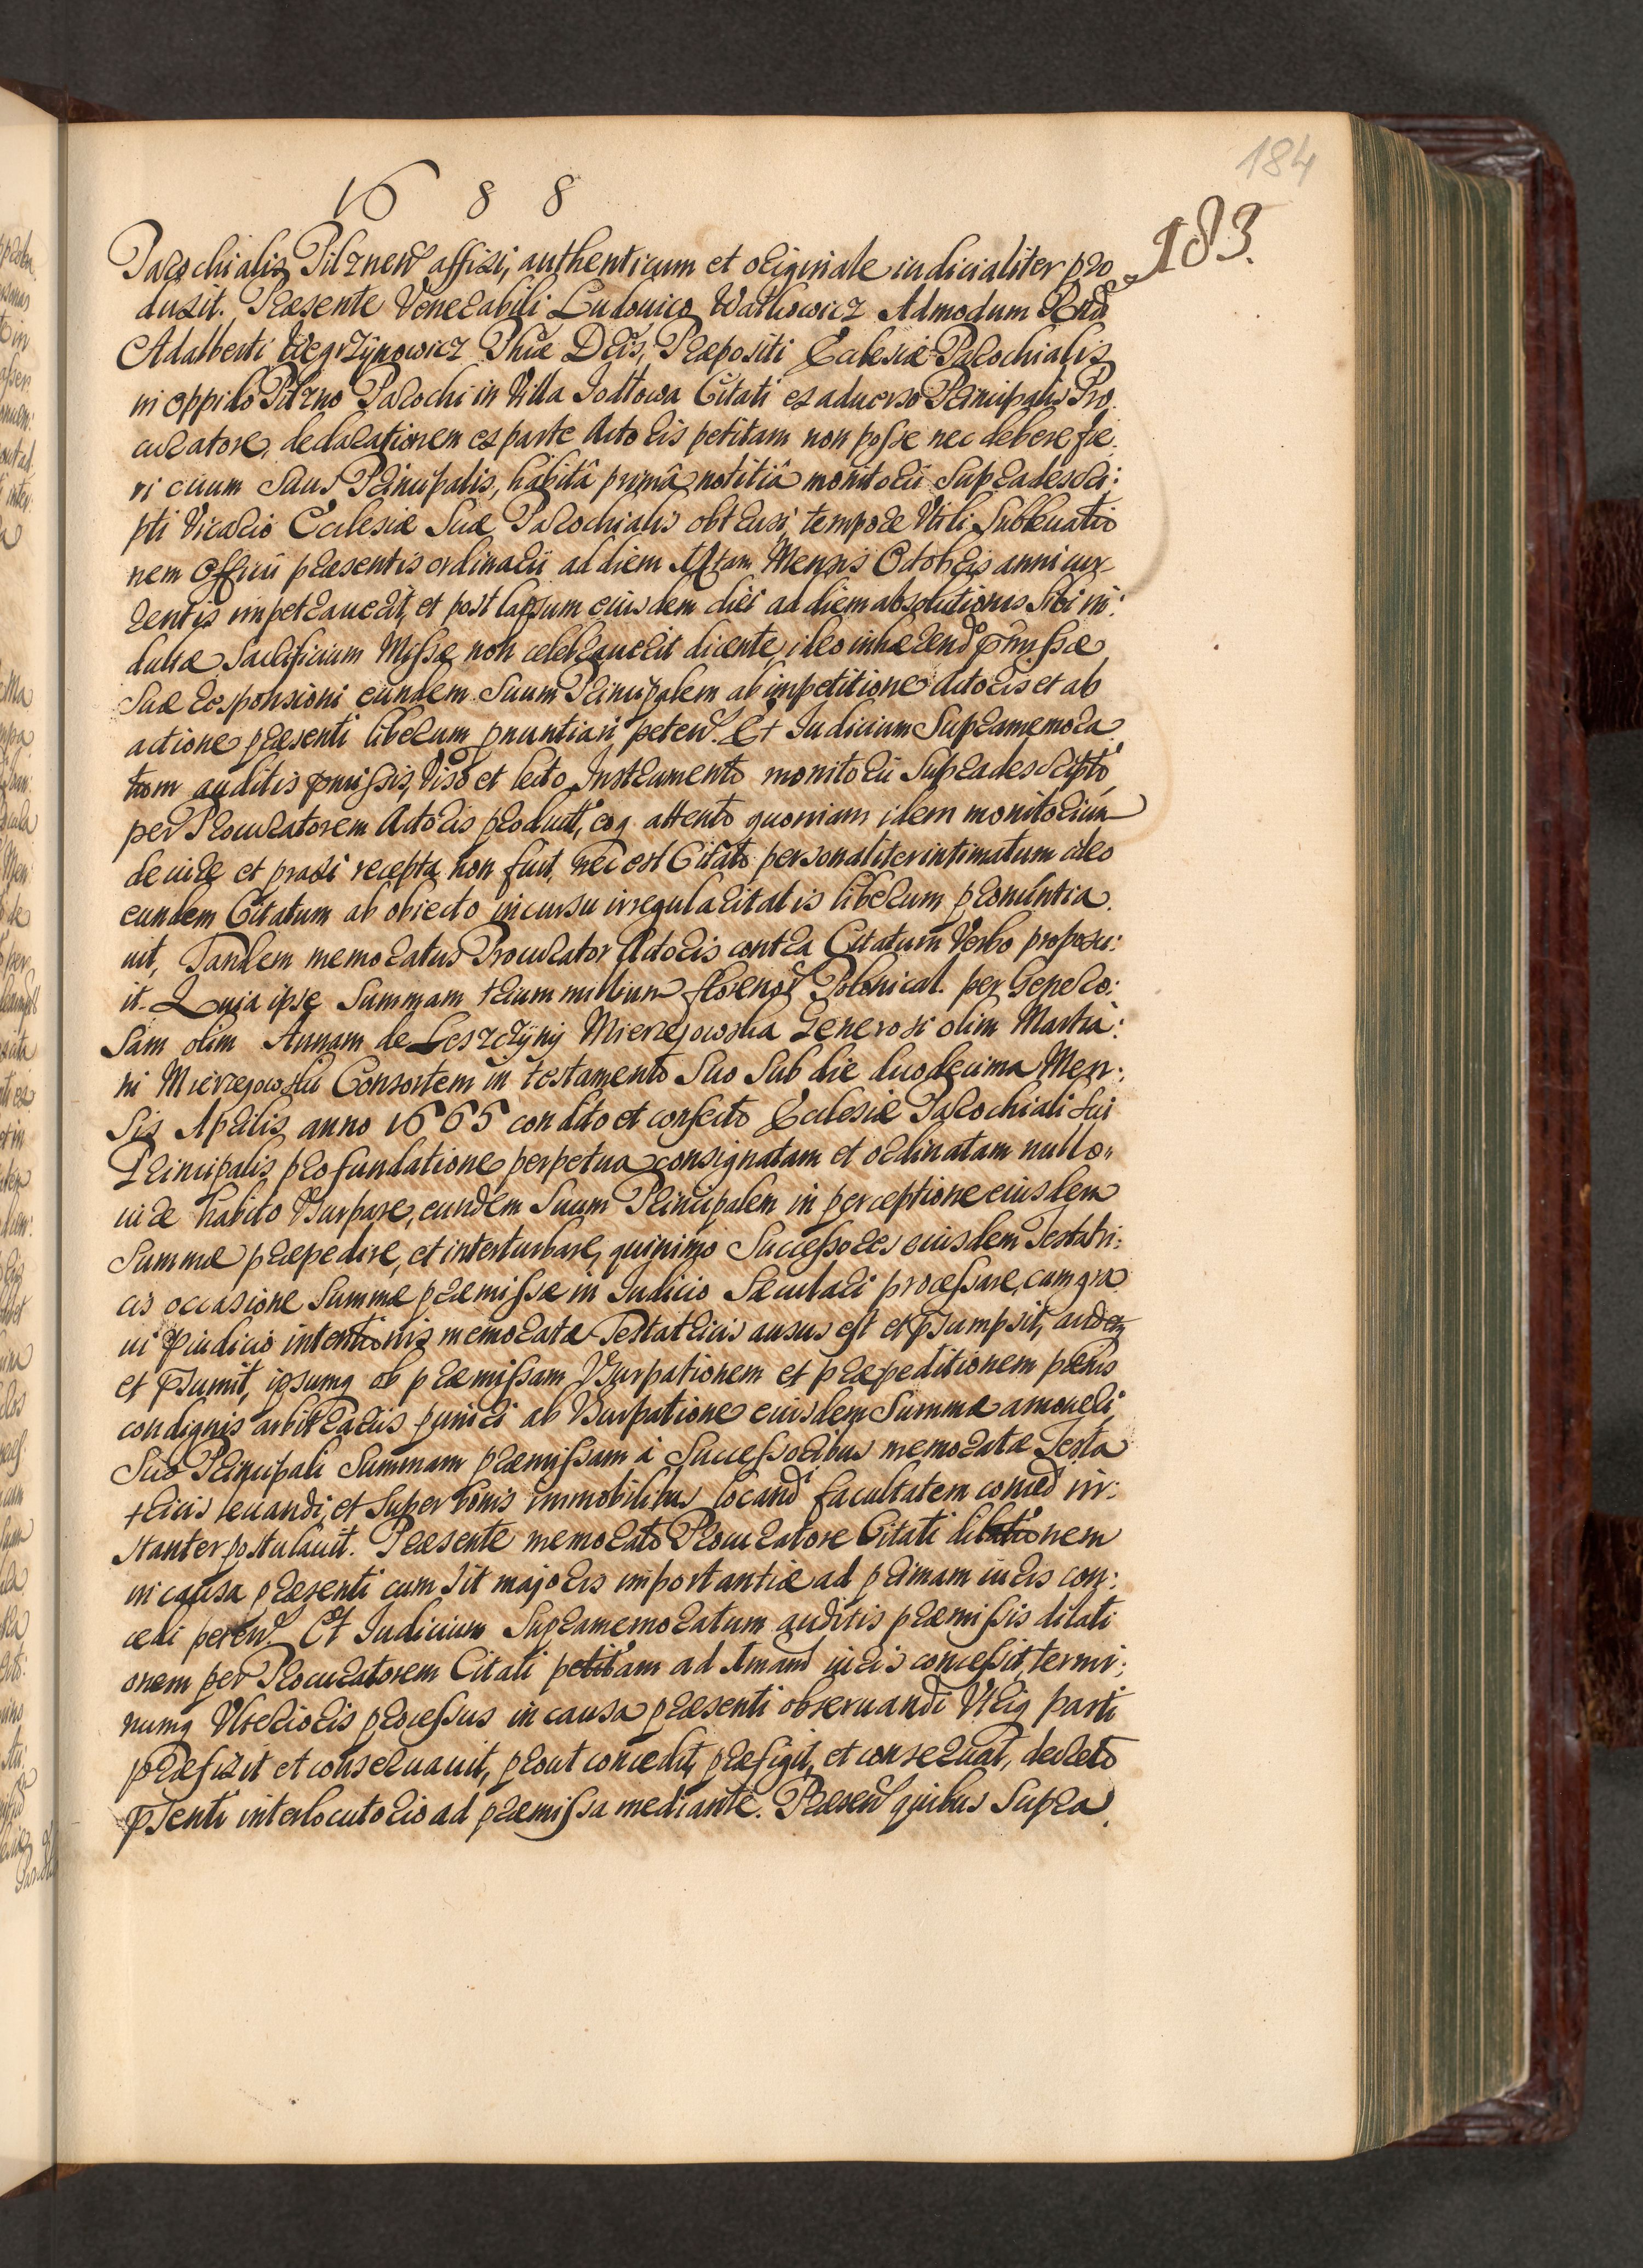 184
1688
183.
Parochialis Pilznen affixi, authenticum et originale iudicialiter pro
duxit. Praesente Venerabili Ludouico Watkowicz Admodum Rndi
Adalberti Węgrzÿnowicz Phiae Dris, Praepositi Ecclesiae Parochialis
in oppido Pilzno Parochi in Villa Jodłowa Citati ex aduerso Principalis Pro
curatore, declarationem ex parte Actoris petitam non posse nec debere fie
ri cuum Suus Principalis, habitâ primâ notitiâ monitorii Supradescri:
pti Vicario Ecclesiae Suae Parochialis obtrusi, tempore Vtili Subleuatio
nem Officii praesentis ordinarii ad diem Mensis Octobris anni cur
rentis impetrauerit, et post lapsum eiusdem diei ad diem absolutionis Sibi in:
dultae Sacrificium Missae non celebrauerit dicente, ideo inhaerendo pmissae
Suae responsioni eundem Suum Principalem ab impetitione Actoris et ab
actione praesenti liberum pnuntiari peten. Et Iudicium Supramemora
tum auditis pmissis, Viso et lecto Instrumento monitorii Supradescripto
per Procuratorem Actoris product, eoq attento quoniam idem monitorium
de iure et praxi recepta non fuit, nec est Citato personaliter intimatum ideo
eundem Citatum ab obiecto incursu irregularitatis liberum pronuntia
uit, Tandem memoratus Procurator Actoris contra Citatum Verbo proposu:
it. Quia ipse Summam trium millium florenor Polonical. per Genero:
Sam olim Annam de Leszczÿnÿ Mierzejowska Generosi olim Marti:
ni Mierzejowski Consortem in testamento Suo Sub die duodecima Men:
Sis Aprilis anno 1665 condito et confecto Ecclesiae Parochiali Sui
Principalis pro fundatione perpetua consignatam et ordinatam nullo
iure habito Vsurpare, eundem Suum Principalem in perceptione eiusdem
Summae praepedire, et interturbare, quinimo Successores eiusdem Testatri:
cis occasione Summae praemissae in Iudicio Saeculari processare, cum gra
ui piudicio intentionis memoratae Testatricis ausus est et psumpsit, audetq
et psumit, ipsumq ob praemissam Vsurpationem et praepeditionem paenis
condignis arbitrariis puniri ab Vsurpatione eiusdem Summae amoueri
Suo Principali Summam praemissam à Successoribus memoratae Testa
tricis leuandi, et Super bonis immobilibus locandi facultatem concedi in:
stanter postulauit. Praesente memorato Procuratore Citati dilationem
in causa praesenti cum Sit majoris importantiae ad primam iuris con:
cedi peten. Et Iudicium Supramemoratum auditis praemissis dilati
onem per Procuratorem Citati petitam ad 1mam iuris concessit, termi:
numq Vlterioris processus in causa praesenti obseruandi Vtriq parti
praefixit et conseruauit, prout concedit, praefigit, et conseruat, decreto
psenti interlocutorio ad praemissa mediante. Praesen quibus Supra.